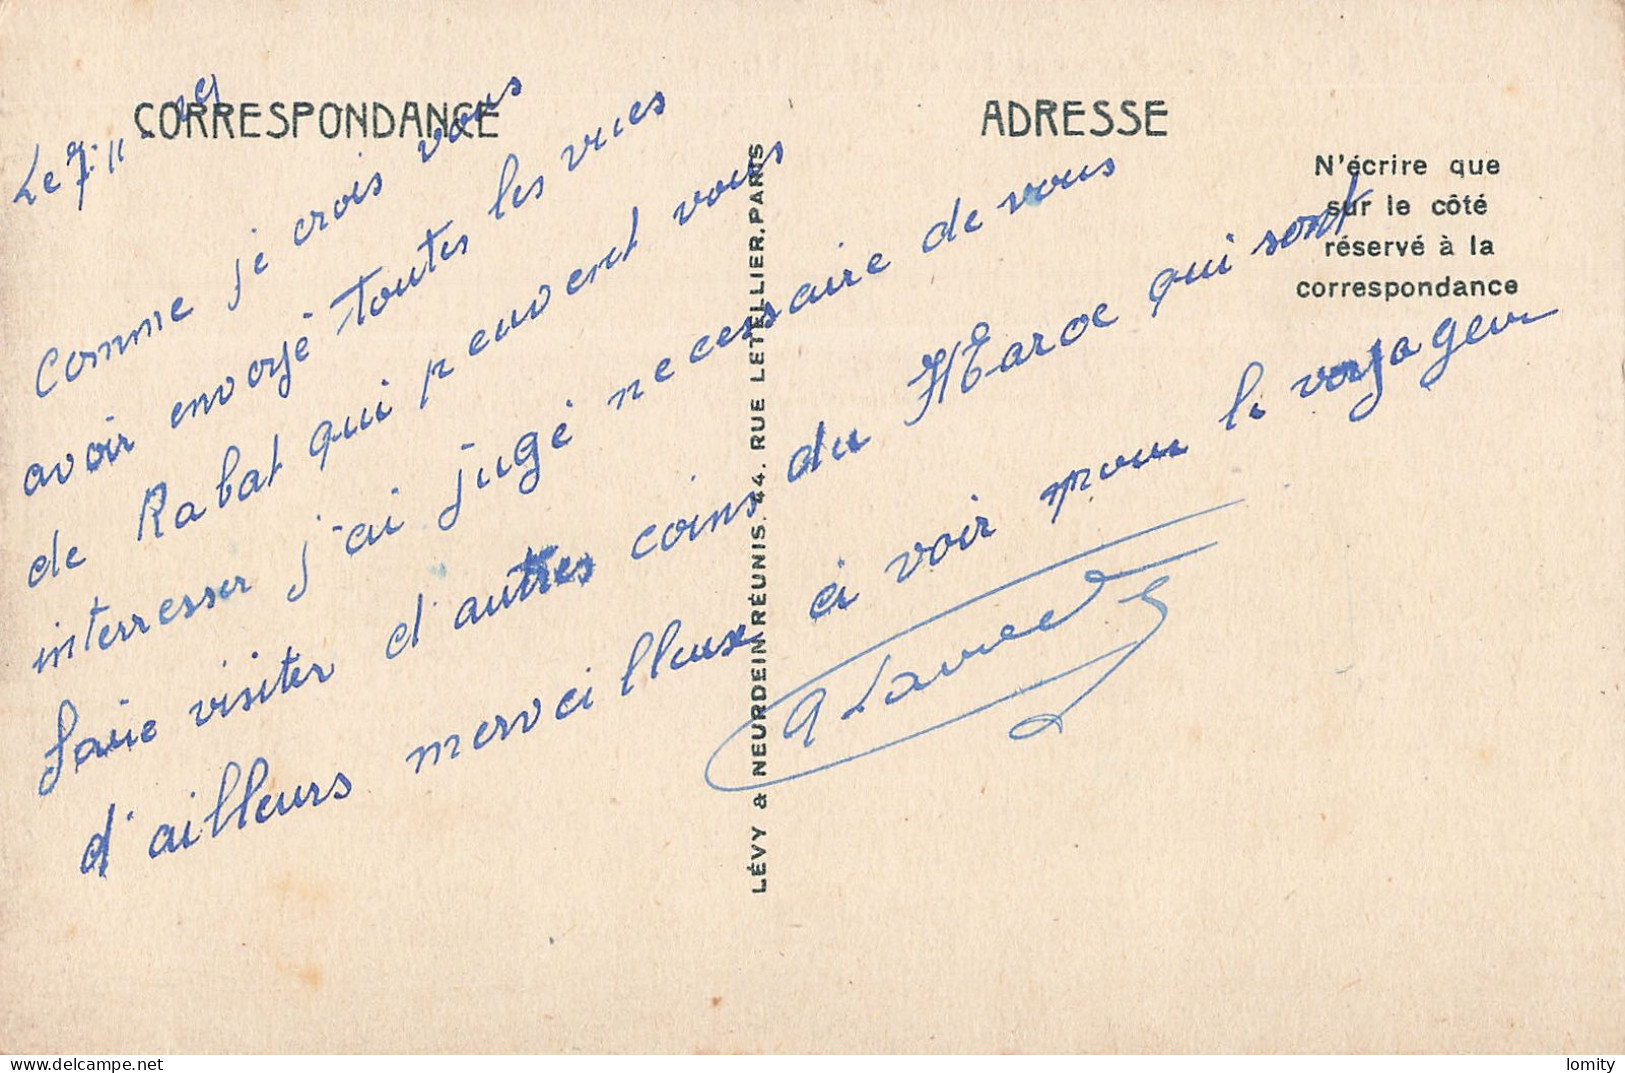 CORRESPONDANCE
ADRESSE
N'écrire que
sur le côté
réservé à la
correspondance
LÉVY & NEURDEIN RÉUNIS. 44. RUE LETELLIER. PARIS
Le 7-11-29
Comme je crois vous
avoir envoyé toutes les vues
de Rabat qui peuvent vous
interresser j'ai jugé necessaire de vous
faire visiter d'autres coins du Maroc qui sont
d'ailleurs merveilleux à voir pour le voyageur
lomity
delcampe.net